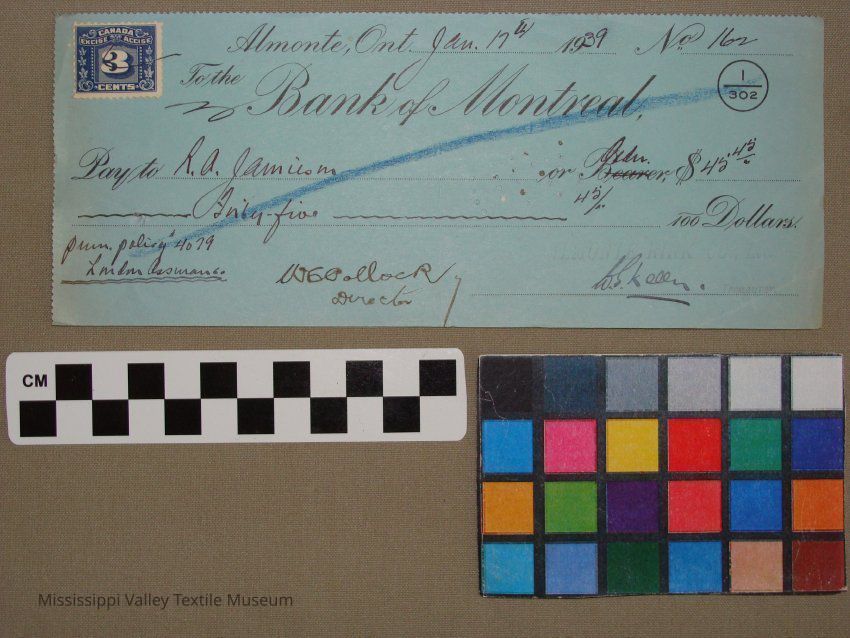 CANADA
EXCISE ACCISE
3
CENTS
Almonte, Ont. Jan. 17th 1939 No 162
To the
Bank of Montreal,
1
302
Pay to R. A. Jamieson or Bearer, $45 45/
Forty-five 45/ 100 Dollars.
prem. policy 4079
London
W G Pollock
Director
Treasurer
CM
Mississippi Valley Textile Museum